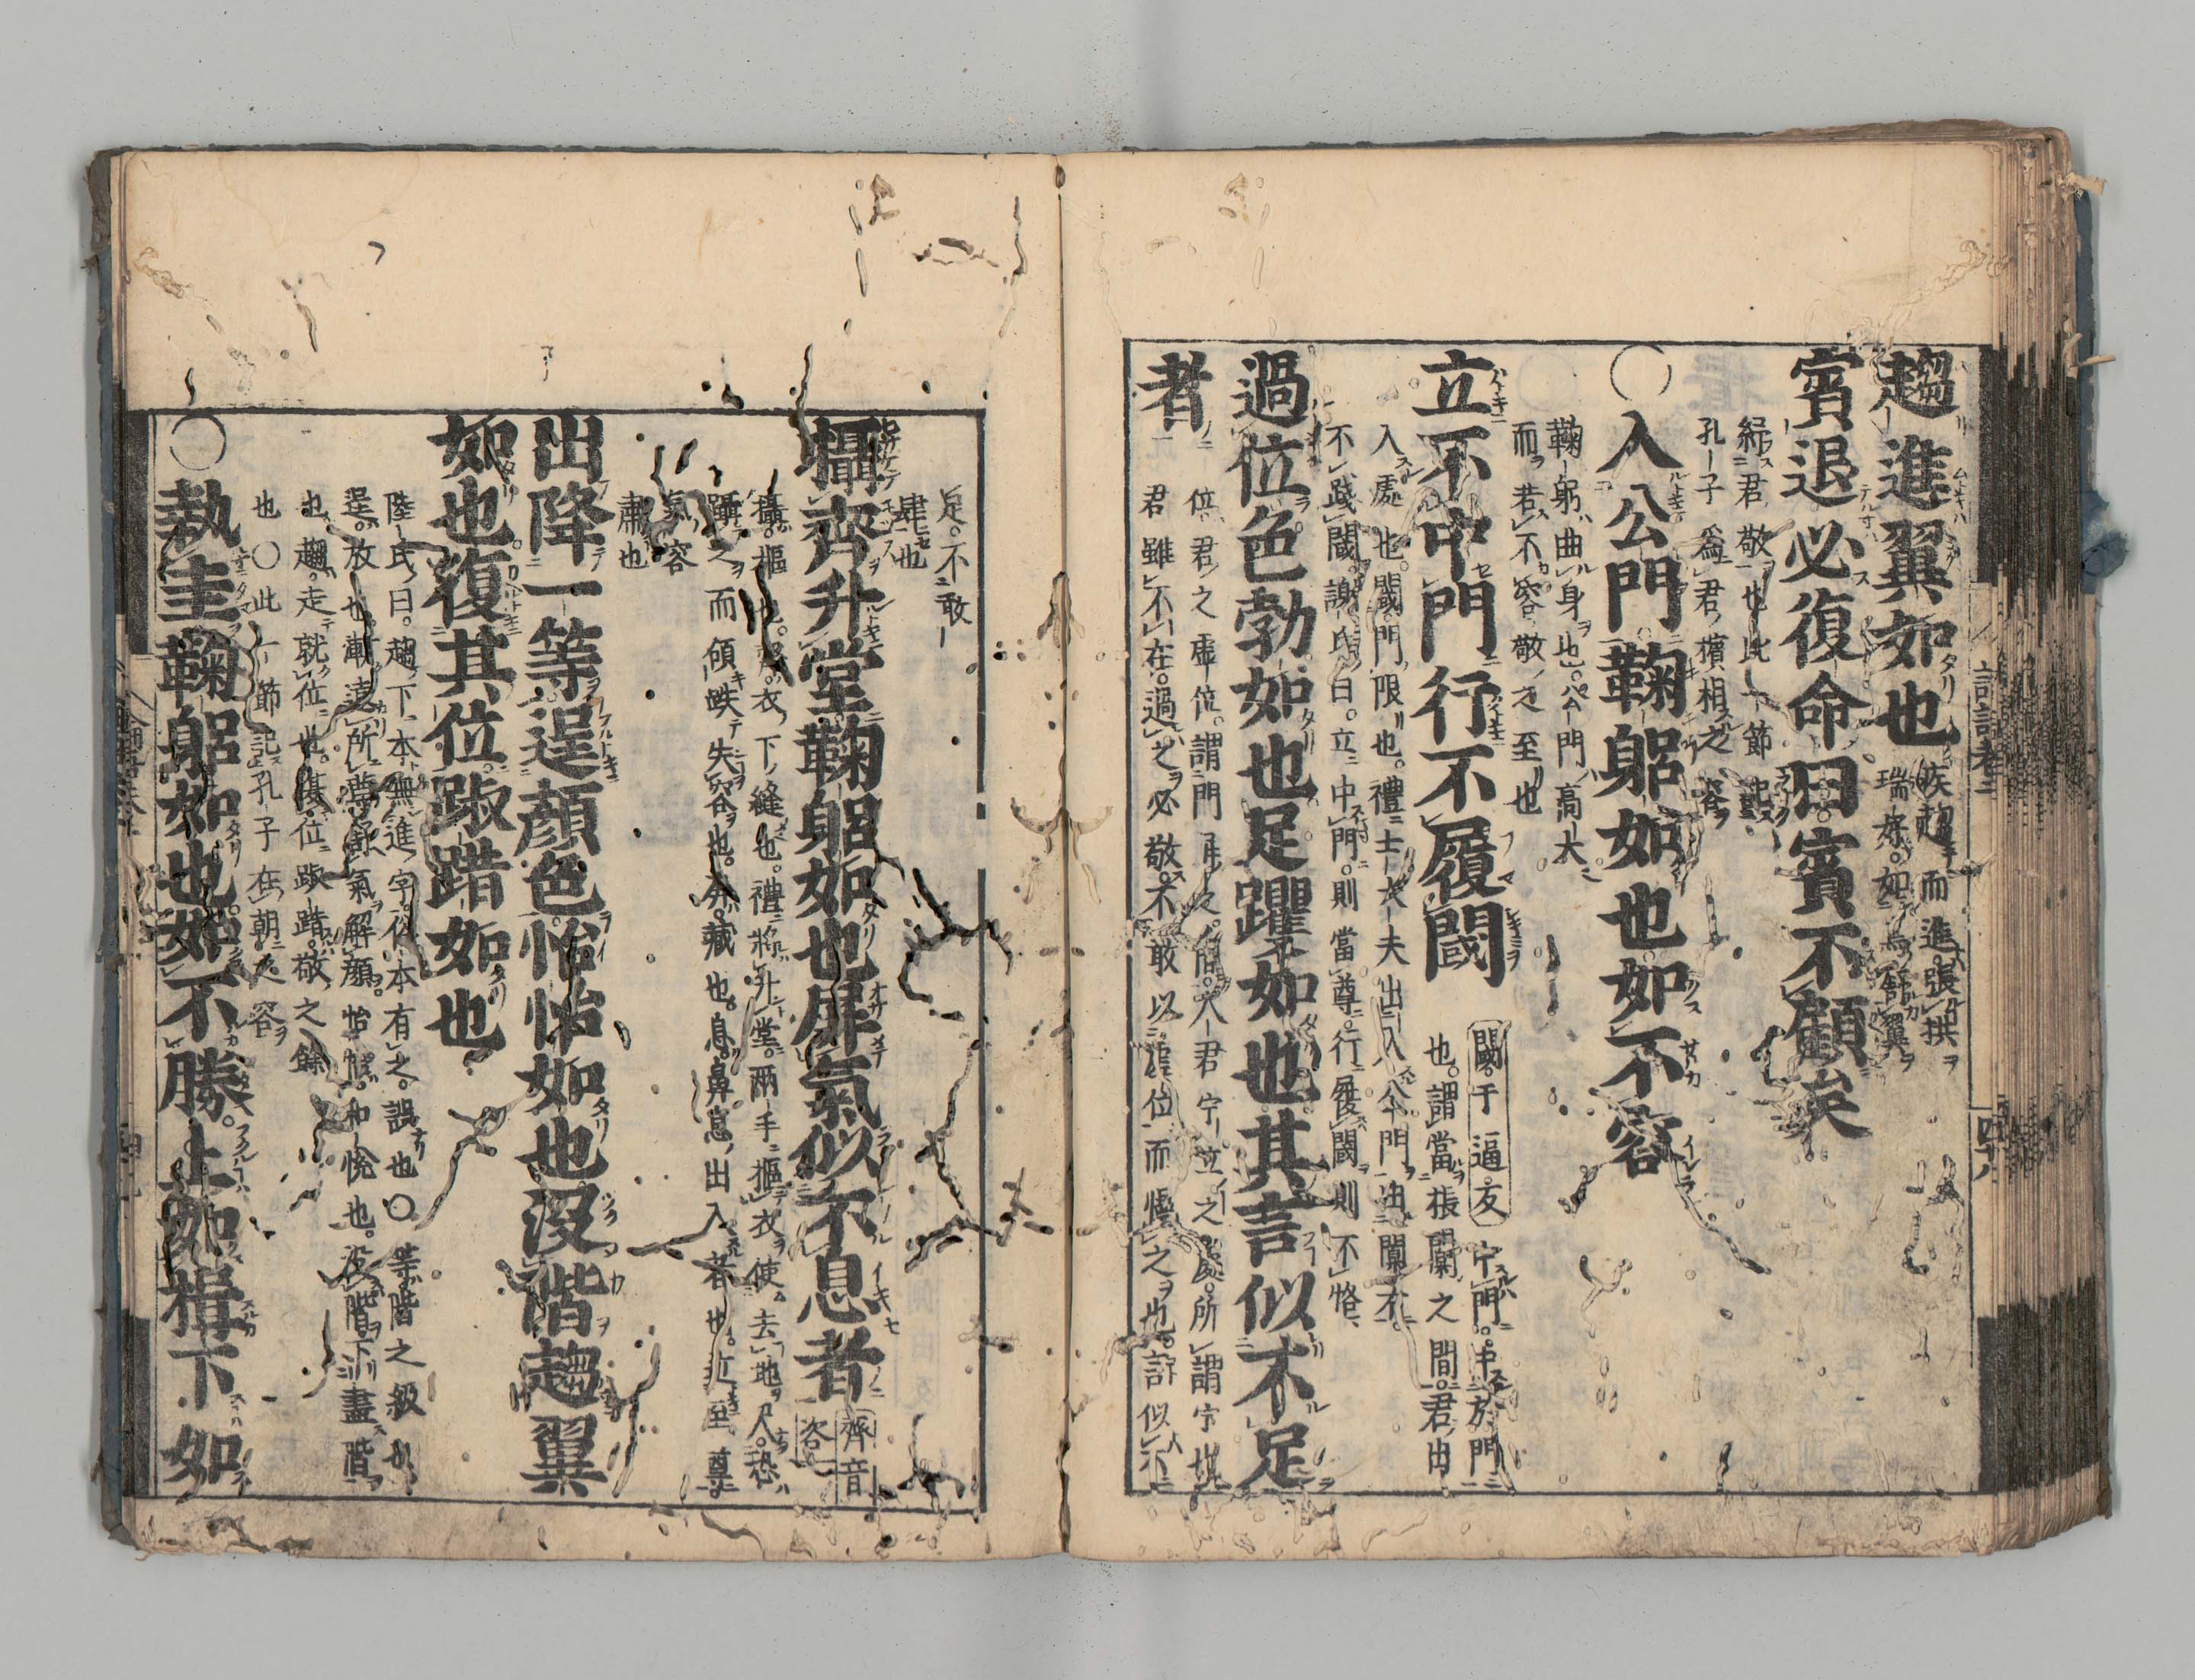 趨進翼如也
疾趨而進張拱
端好如鳥舒翼
賓退必復命曰賓不顧矣
紓君敬也此一節記
孔子爲君擯相之容
○入公門鞠躬如也如不容
鞠躬曲身也公門高大
而若不容敬之至也
立不中門行不履閾
閾于逼反
中門中於門
也謂當棖闑之間君出
入處也閾門限也禮士大夫出入公門由闑右
不踐閾謝氏曰立中門則當尊行履閾則不恪
過位色勃如也足躩如也其言似不足
者
位君之虛位謂門屏之間人君宁立之處所謂宁也
君雖不在過之必敬不敢以虛位而慢之也言似不
足不敢
肆也
攝齊升堂鞠躬如也屏氣似不息者
齊音
咨
攝摳也齊衣下縫也禮將升堂兩手摳衣使去地尺恐
躡之而傾跌失容也屏藏也息鼻息出入者也近至尊
氣容
肅也
出降一等逞顏色怡怡如也沒階趨翼
如也復其位踧踖如也
陸氏曰趨下本無進字俗本有之誤也○等階之級也
逞放也漸遠所尊舒氣解顏怡怡和悅也沒階下盡階
也趨走就位也復位踧踖敬之餘
也○此一節記孔子在朝之容
○執圭鞠躬如也如不勝上如揖下如